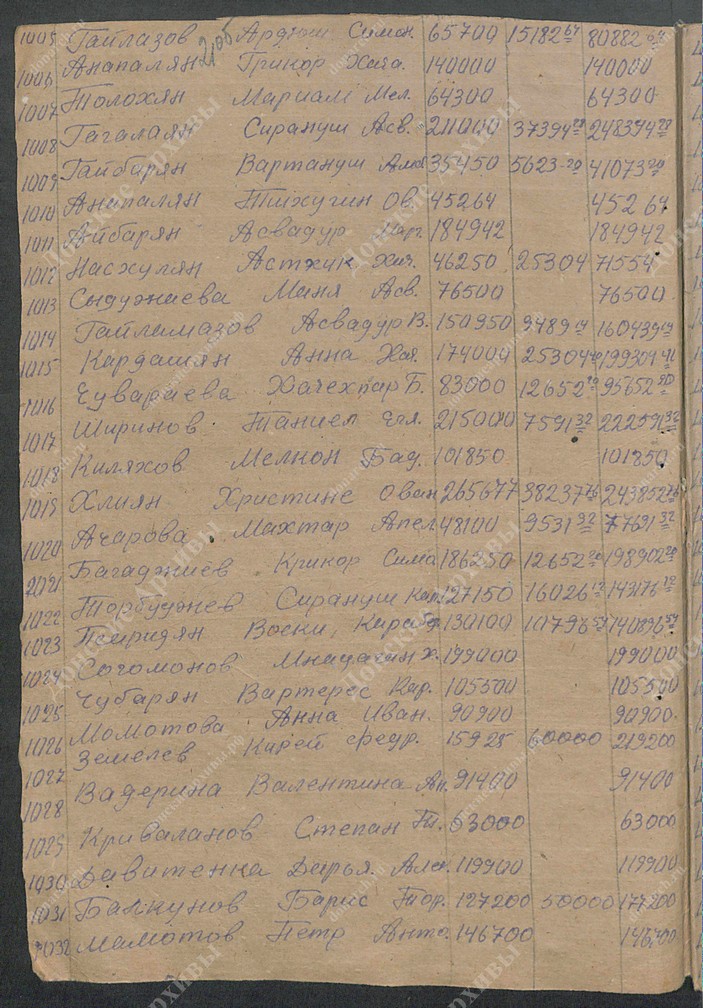 1005 Гайлазов Ардюш Симон. 65700 15182 67 80882 67
206
1006 Анапалян Грикор Хача. 140000 140000
1007 Толохян Мариам Мел. 64300 64300
1008 Гагалаян Сирануш Асв. 211000 37394 29 248394 29
1009 Гайбарян Вартануш 35450 5623-20 41073 20
1010 Анапалян Ов. 45264 45264
1011 Айбарян Асвадур Марг. 184942 184942
1012 Насхулян Астхик Хач. 46250 25304 71554
1013 Сыдужаева Маня Асв. 76500 76500
1014 Гайламазов Асвадур В. 150950 9489 160439
1015 Кардашян Анна Хач. 174000 25304 199304
1016 Чувараева Хачехпар Б. 83000 12652 95652
1017 Ширинов Таниел Егя. 215000 7591 32 222591 32
1018 Киляхов Мелкон Бад. 101850 101850
1019 Хлиян Христине Ован 38237 243852
1020 Ачарова Махтар Апел 9531 32 77631 32
1021 Багаджиев Крикор Сима 186250 12652 20 198902 20
1022 Торбуджев Сирануш Кап. 127150 16026 12 143176 12
1023 Воски, Караб. 130100 10796 57 140896 57
1024 Согомонов Мнацакан Х. 199000 199000
1025 Чубарян Вартерес Кар. 105500 105500
1026 Момотова Анна Иван. 90900 90900.
1027 Земелев Карей Федр. 60000 219200
1028 Вадерина Валентина Ан. 91400 91400
1029 Криваланов Степан Ти. 63000 63000
1030 Давитенка Дарья. Алек. 119900 119900
1031 Балкунов Барис Тор. 127200 50000 177200
1032 Мамотов Петр Анто. 146700 146700
Донские Архивы